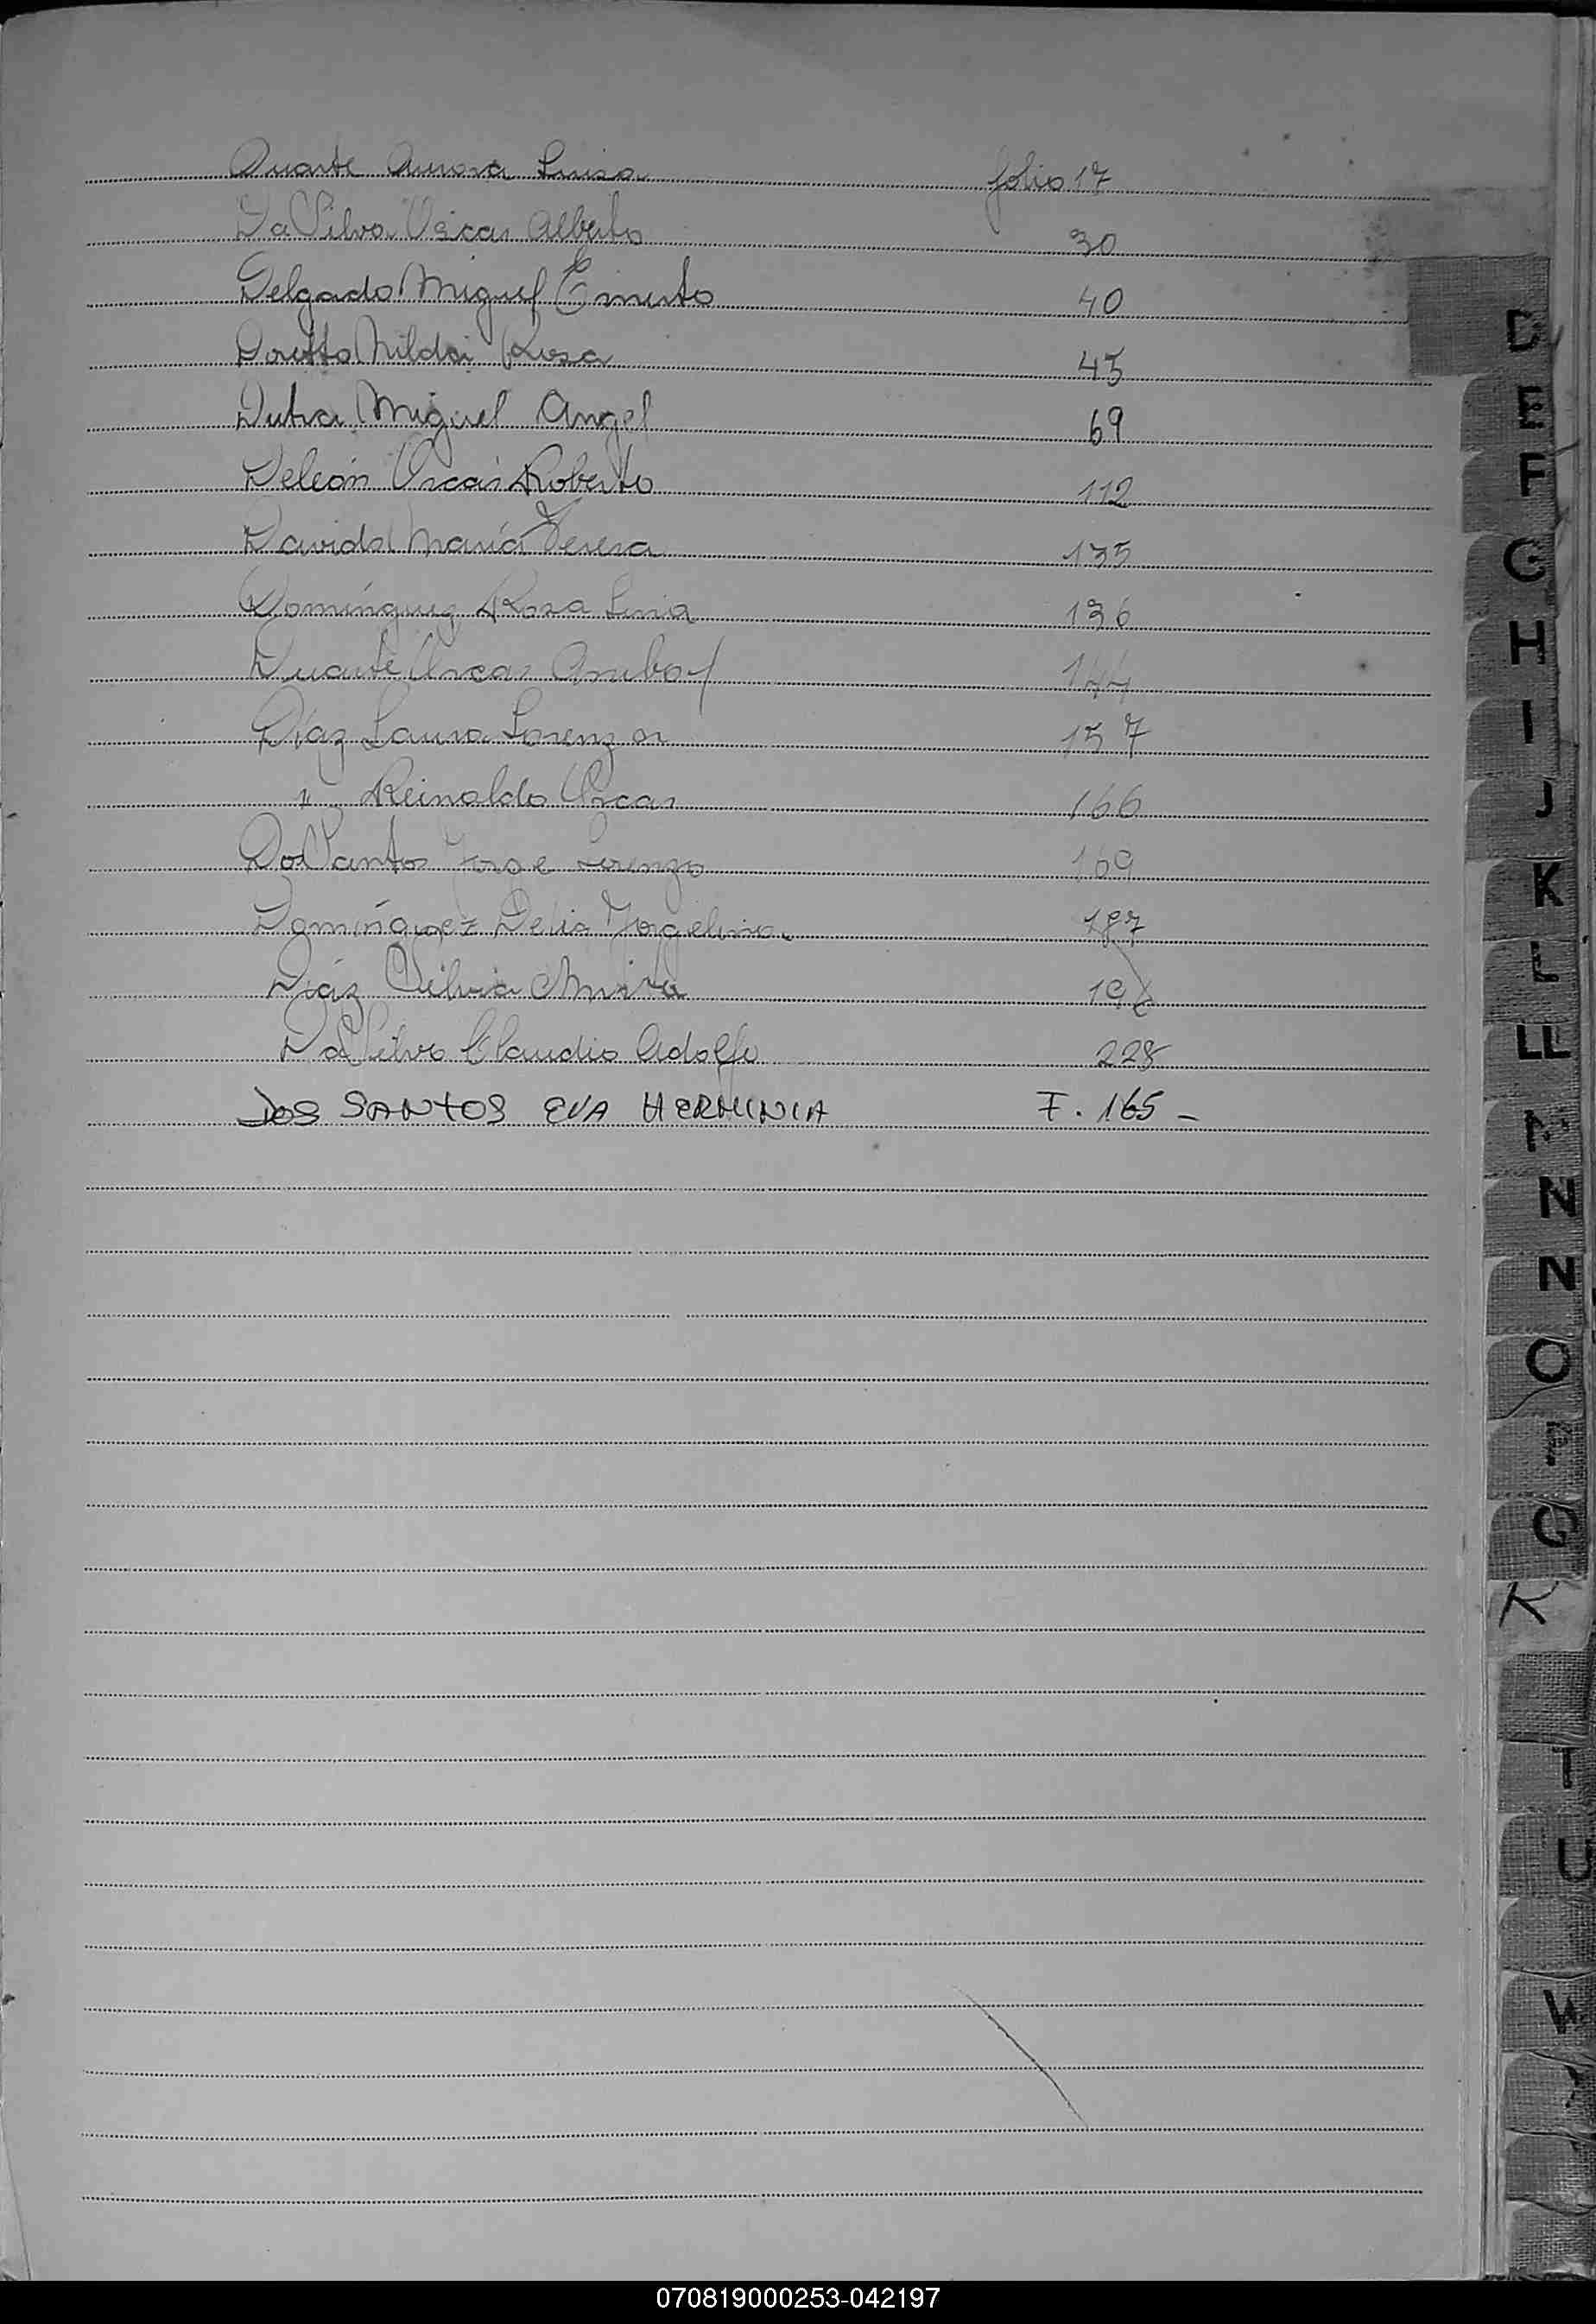 Duarte Aurora Luisa folio 17
DaSilva Oscar Alberto 30
Delgado Miguel Ernesto 40
Doretto Nilda Rosa 45
Dutra Miguel Angel 69
Deleón Oscar Roberto 112
David María Teresa 135
Domínguez Rosa 136
Duarte Oscar 144
Díaz Laura Lorenza 157
" Reinaldo Oscar 166
DoSanto Jorge Lorenzo 169
Domínguez Delia Jorgelina 187
Díaz Silvia 19
DaSilva Claudio Adolfo 228
DOS SANTOS EVA HERMINIA F. 165 -
D
E
F
G
H
I
J
K
L
LL
M
N
N
O
P
Q
R
T
U
070819000253-042197